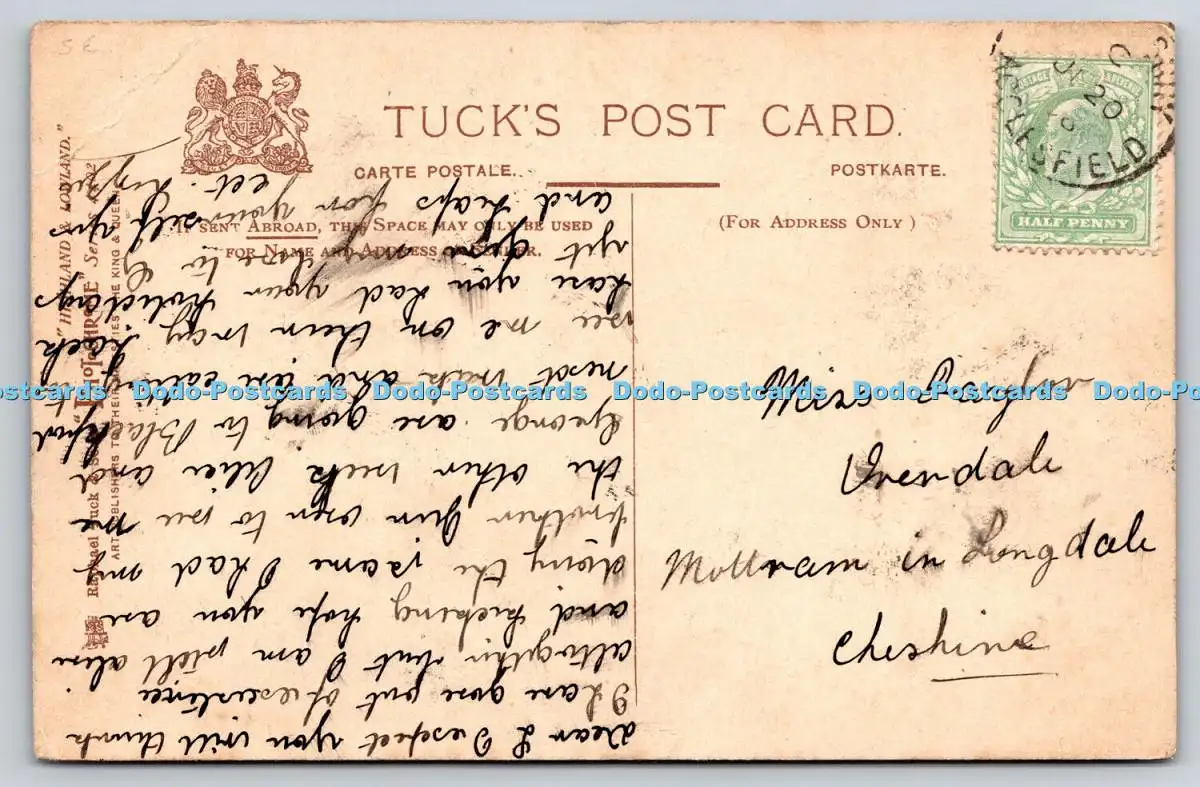 TUCK'S POST CARD.
CARTE POSTALE.
POSTKARTE.
IF SENT ABROAD, THIS SPACE MAY ONLY BE USED
FOR NAME AND ADDRESS OF SENDER.
(FOR ADDRESS ONLY)
HALF PENNY
MACCLESFIELD
JY 20
"HIGHLAND & LOWLAND."
Raphael Tuck & Sons
Dear L I expect you will think
I have gone out of existence
altogether but I am still alive
and kicking hope you are
doing the same I had my
brother Jim over to see me
the other week Olive and
George are going to Blackpool
next week and are calling to
see me on their way back
have you had your holidays
yet
and haps you yourself
Miss
Mottram in Longdale
Cheshire
Dodo-Postcards Dodo-Postcards Dodo-Postcards Dodo-Postcards Dodo-Postcards